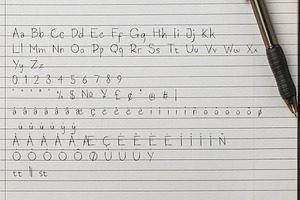 Aa Bb Cc Dd Ee Ff Gg Hh Ii Jj Kk
Ll Mm Nn Oo Pp Qq Rr Ss Tt Uu Vv Ww Xx
Yy Zz
0 1 2 3 4 5 6 7 8 9
% $ № ¥ £ ¢ @ # |
ù ú û ü ÿ ý
À Á Â Ã Ä Å Æ Ç È É Ê Ë Ì Í Î Ï Ñ
Ò Ó Ô Õ Ö Ø Ù Ú Û Ý
tt ll st